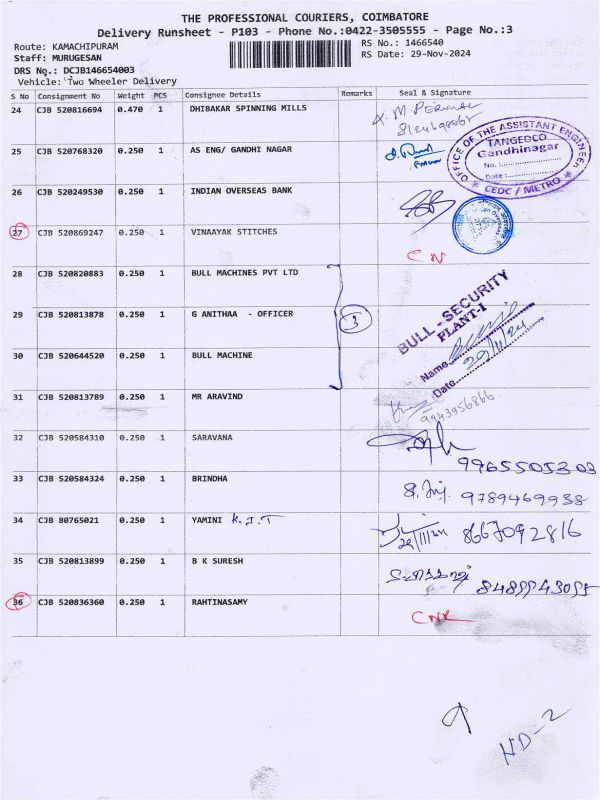 THE PROFESSIONAL COURIERS, COIMBATORE
Delivery Runsheet - P103 - Phone No.:0422-3505555 - Page No.:3
Route: KAMACHIPURAM
RS No.: 1466540
Staff: MURUGESAN
RS Date: 29-Nov-2024
DRS No.: DCJB146654003
Vehicle: Two Wheeler Delivery
S No Consignment No Weight PCS Consignee Details Remarks Seal & Signature
24 CJB 520816694 0.470 1 DHIBAKAR SPINNING MILLS
25 CJB 520768320 0.250 1 AS ENG/ GANDHI NAGAR
OFFICE OF THE ASSISTANT ENGINEER
TANGEDCO
Gandhinagar
No.:
Date:
CEDC / METRO
26 CJB 520249530 0.250 1 INDIAN OVERSEAS BANK
27 CJB 520869247 0.250 1 VINAAYAK STITCHES
CN
28 CJB 520820883 0.250 1 BULL MACHINES PVT LTD
29 CJB 520813878 0.250 1 G ANITHAA - OFFICER
3
BULL - SECURITY
PLANT-I
Name
Date 29/11/24
30 CJB 520644520 0.250 1 BULL MACHINE
31 CJB 520813789 0.250 1 MR ARAVIND
9943956866
32 CJB 520584310 0.250 1 SARAVANA
9965505303
33 CJB 520584324 0.250 1 BRINDHA
9789469938
34 CJB 80765021 0.250 1 YAMINI K.J.T
29/11/24 8667092816
35 CJB 520813899 0.250 1 B K SURESH
36 CJB 520836360 0.250 1 RAHTINASAMY
CNR
ND-2